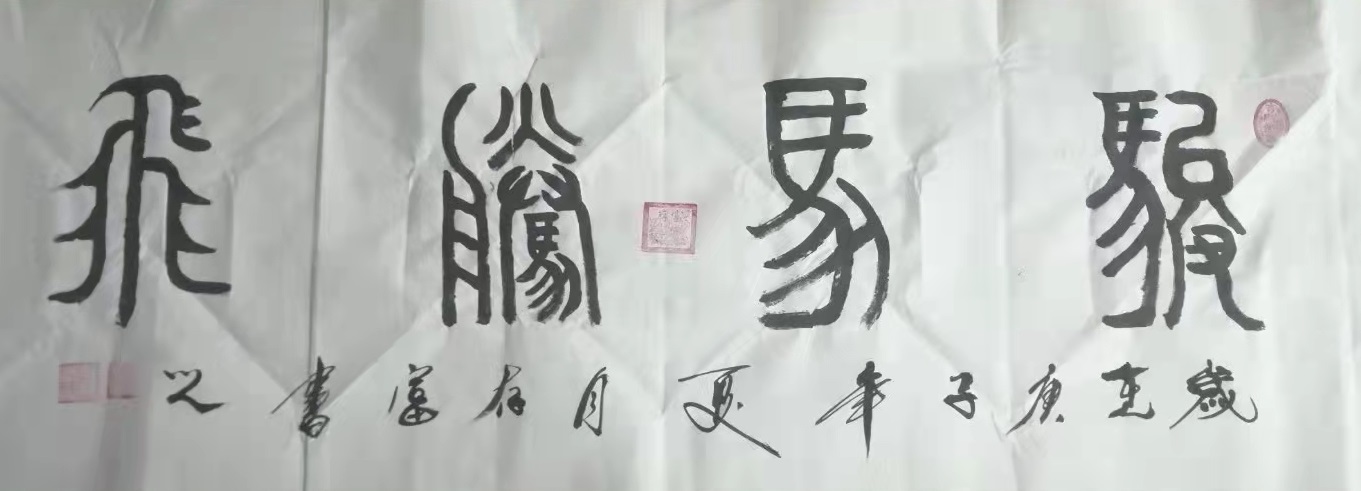 駿馬騰飛
歲在庚子年夏月存富書之